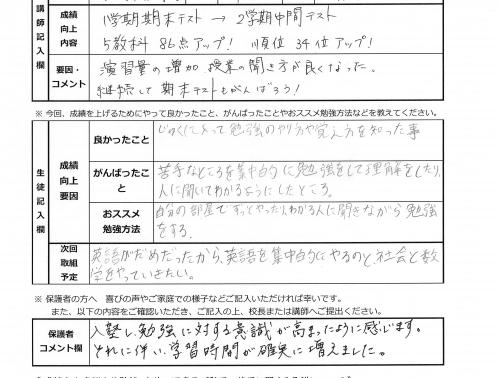 講師記入欄
成績向上内容
1学期期末テスト → 2学期中間テスト
5教科 86点アップ! 順位 34位アップ!
要因・コメント
演習量の増加 授業の聞き方が良くなった。
継続して期末テストもがんばろう!
※ 今回、成績を上げるためにやって良かったこと、がんばったことやおススメ勉強方法などを教えてください。
生徒記入欄
成績向上要因
良かったこと
じゅくに入って勉強のやり方や覚え方を知った事
がんばったこと
苦手なところを集中的に勉強をして理解をしたり、
人に聞いてわかるようにしたところ。
おススメ勉強方法
自分の部屋でずっとやったり、わかる人に聞きながら勉強
をする。
次回取組予定
英語がだめだったから、英語を集中的にやるのと、社会と数
学をやっていきたい。
※ 保護者の方へ 喜びの声やご家庭での様子などご記入いただければ幸いです。
また、以下の内容をご確認いただき、ご記入の上、校長または講師へご提出ください。
保護者コメント欄
入塾し、勉強に対する意識が高まったように感じます。
それに伴い、学習時間が確実に増えました。